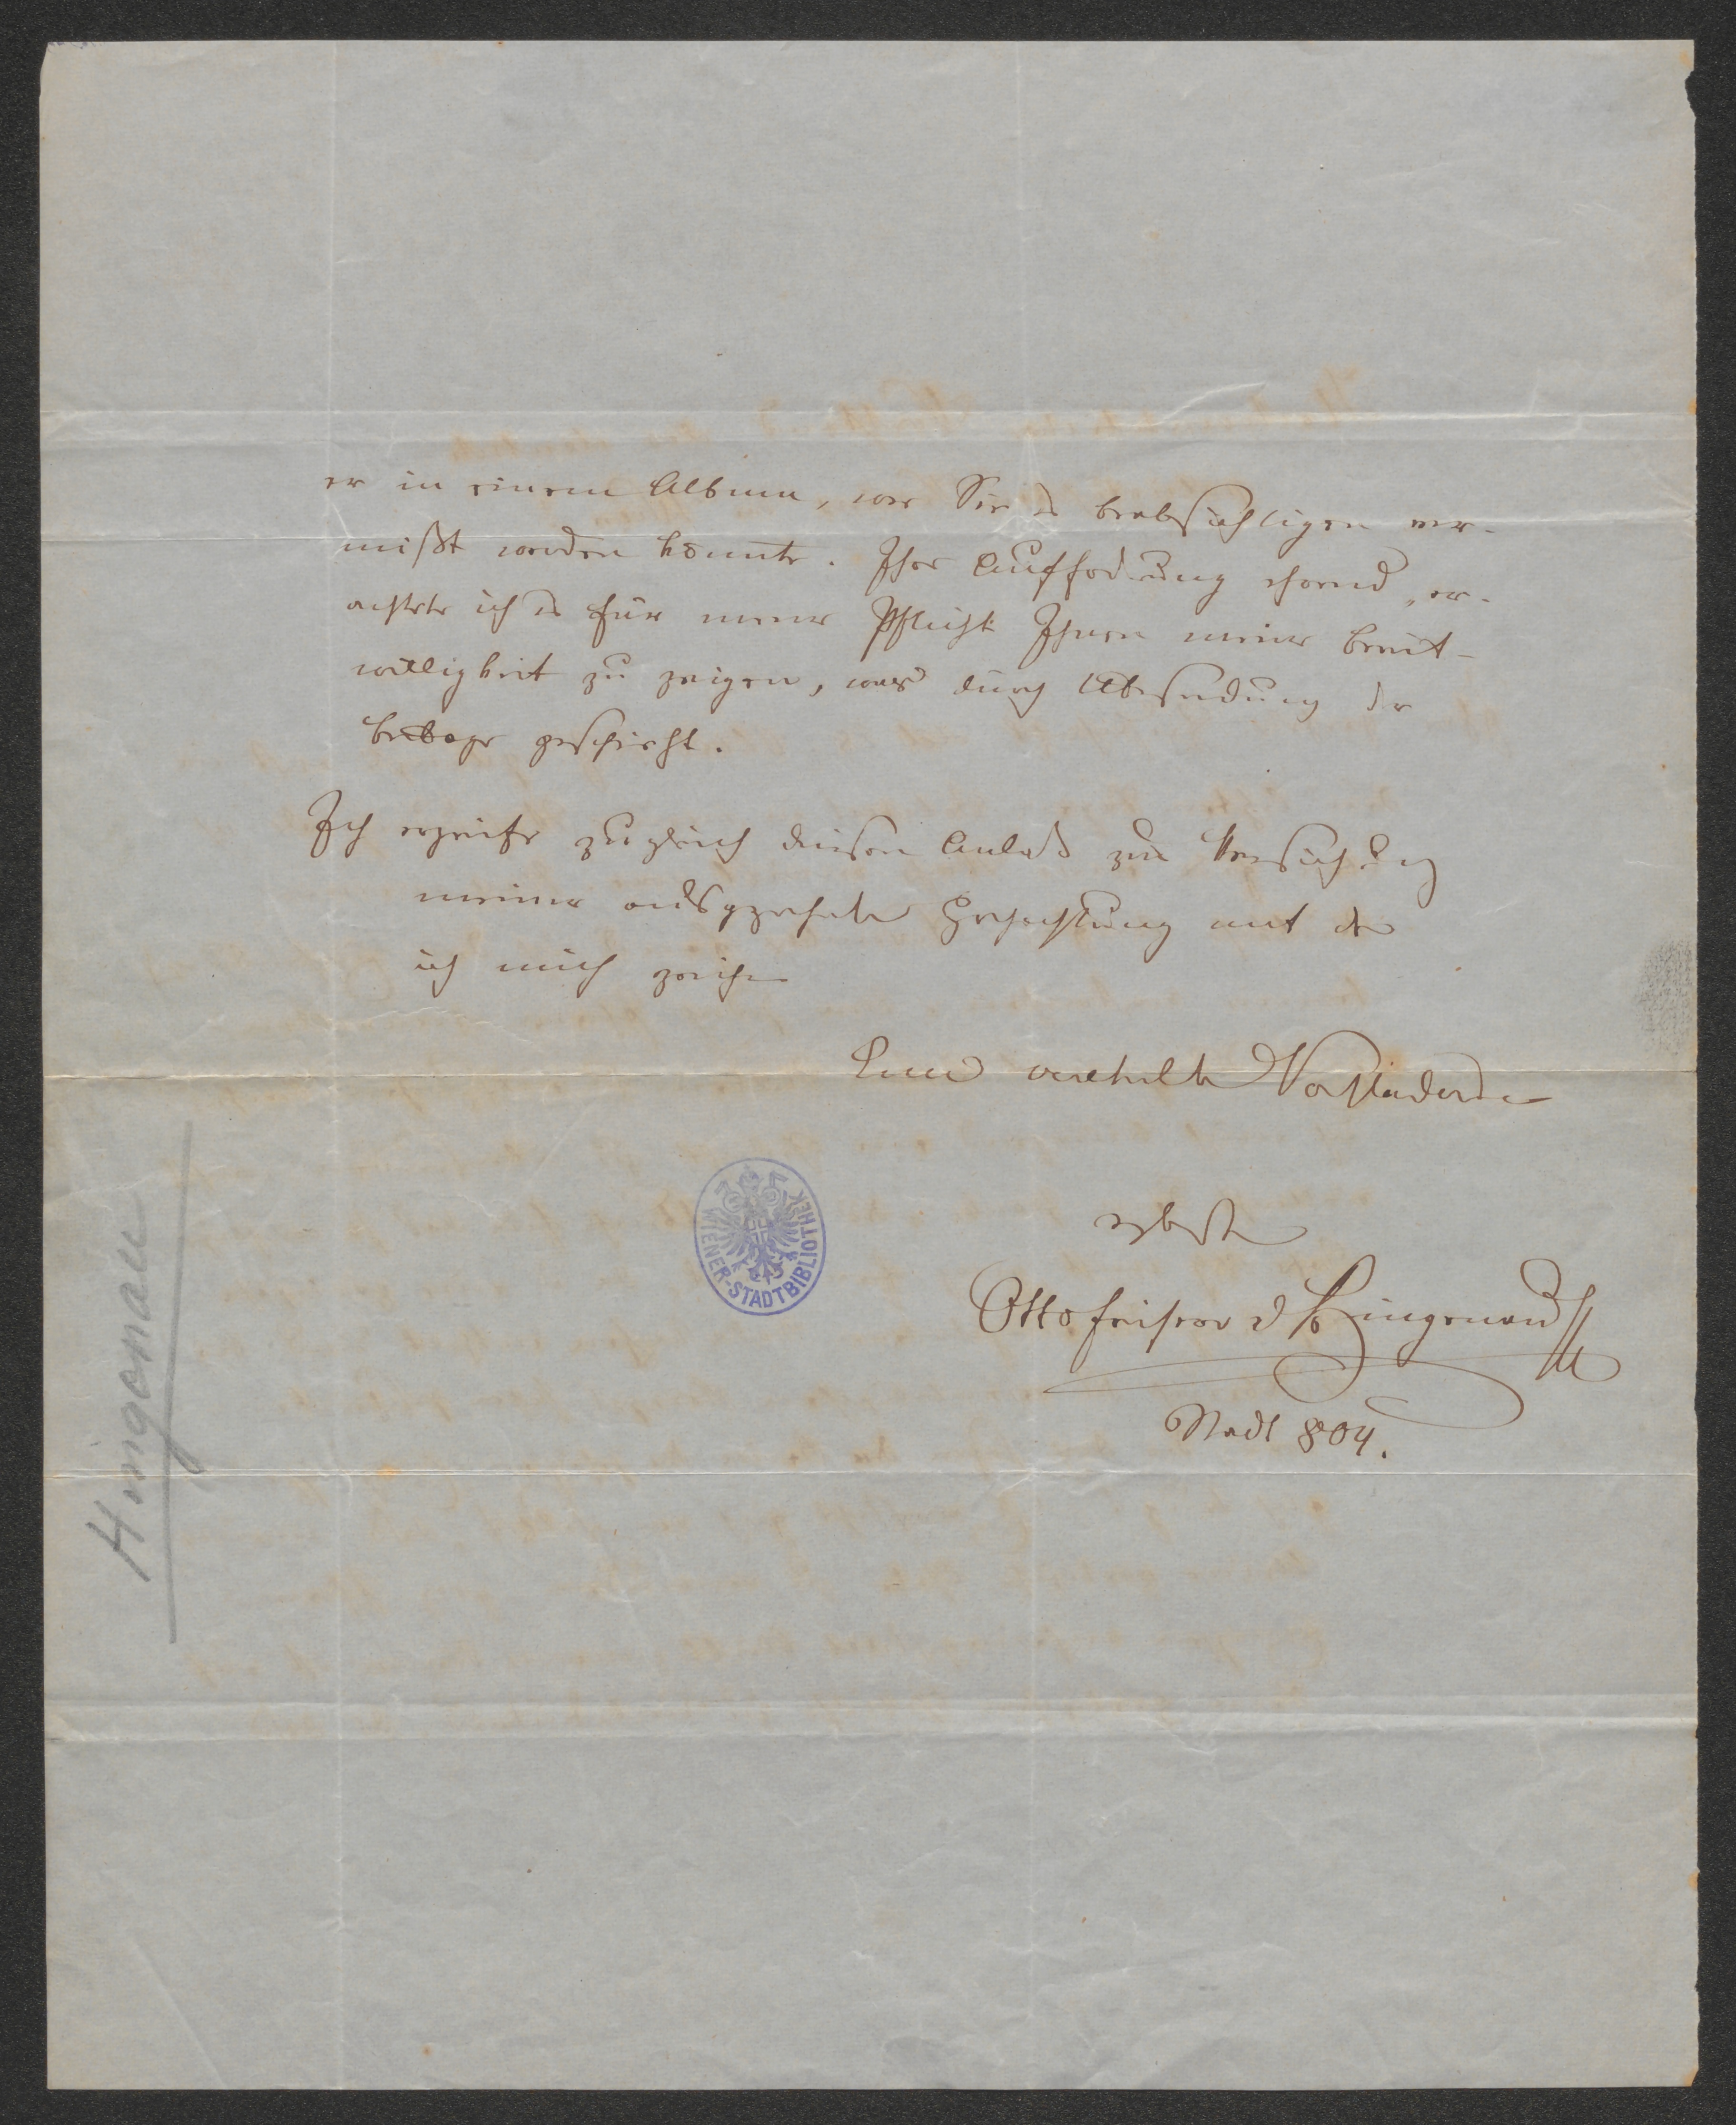 er in einem Album, wie Sie es beabsichtigen ver-
mißt werden könnte. Ihre Aufforderung ehrend, er-
achte ich es für meine Pflicht Ihnen meine Bereit-
willigkeit zu zeigen, was durch Absendung der
Beilage geschieht.
Ich ergreife zugleich diesen Anlaß zur Versicherung
meiner ausgezeichneten Hochachtung mit der
ich mich zeichne
Eines verehrten Vorstandes
ergebenster
Otto Freiherr v Hingenau
Stadt 804.
WIENER-STADTBIBLIOTHEK
Hingenau